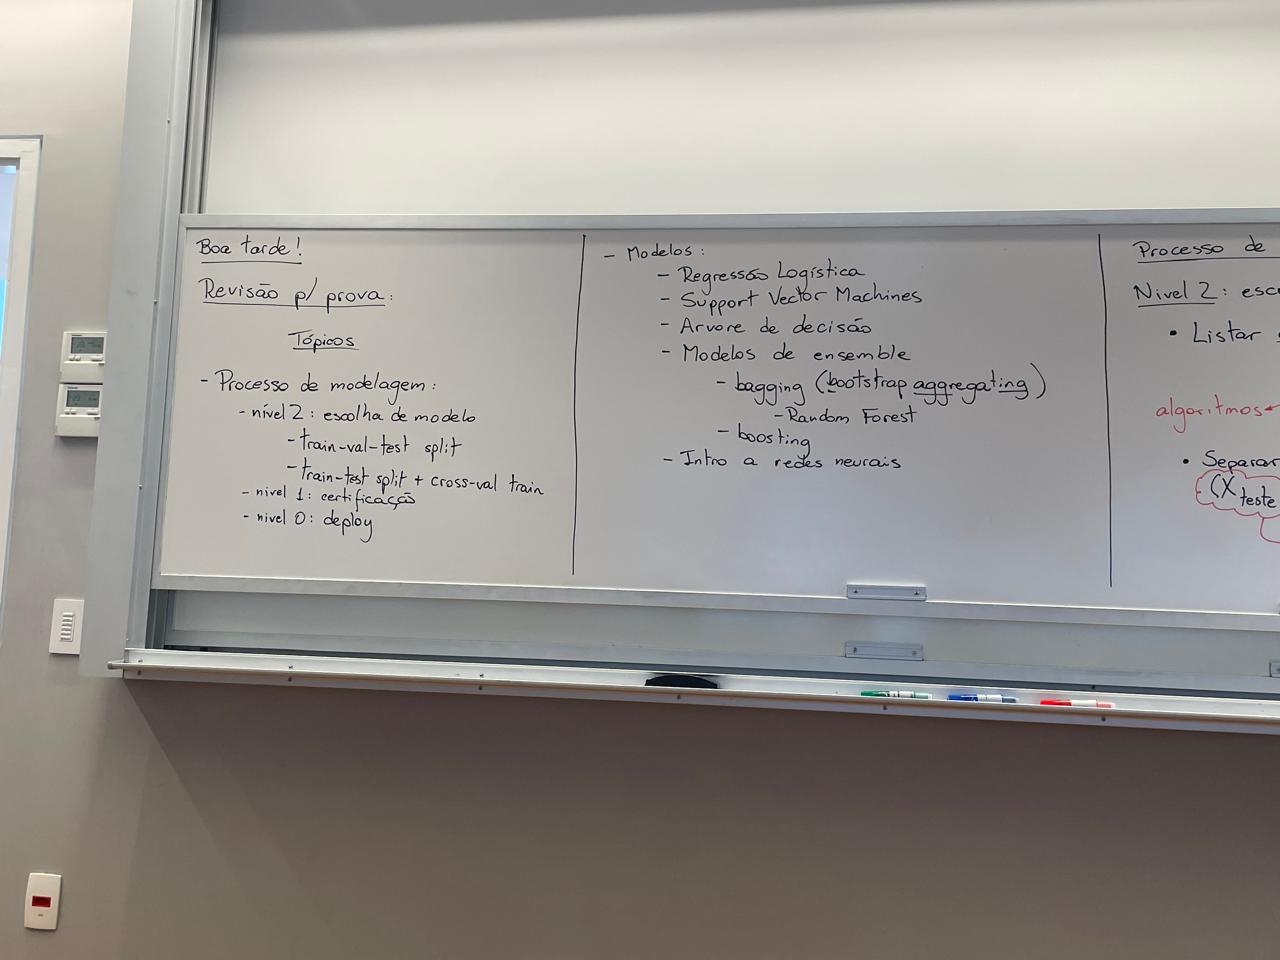 Boa tarde!
Revisão p/ prova:
Tópicos
- Processo de modelagem:
- nível 2: escolha de modelo
- train-val-test split
- train-test split + cross-val train
- nivel 1: certificação
- nivel 0: deploy
- Modelos:
- Regressão Logística
- Support Vector Machines
- Arvore de decisão
- Modelos de ensemble
- bagging (bootstrap aggregating)
- Random Forest
- boosting
- Intro a redes neurais
Processo de
Nivel 2: esc
• Listar
algoritmos
• Separar
(X teste